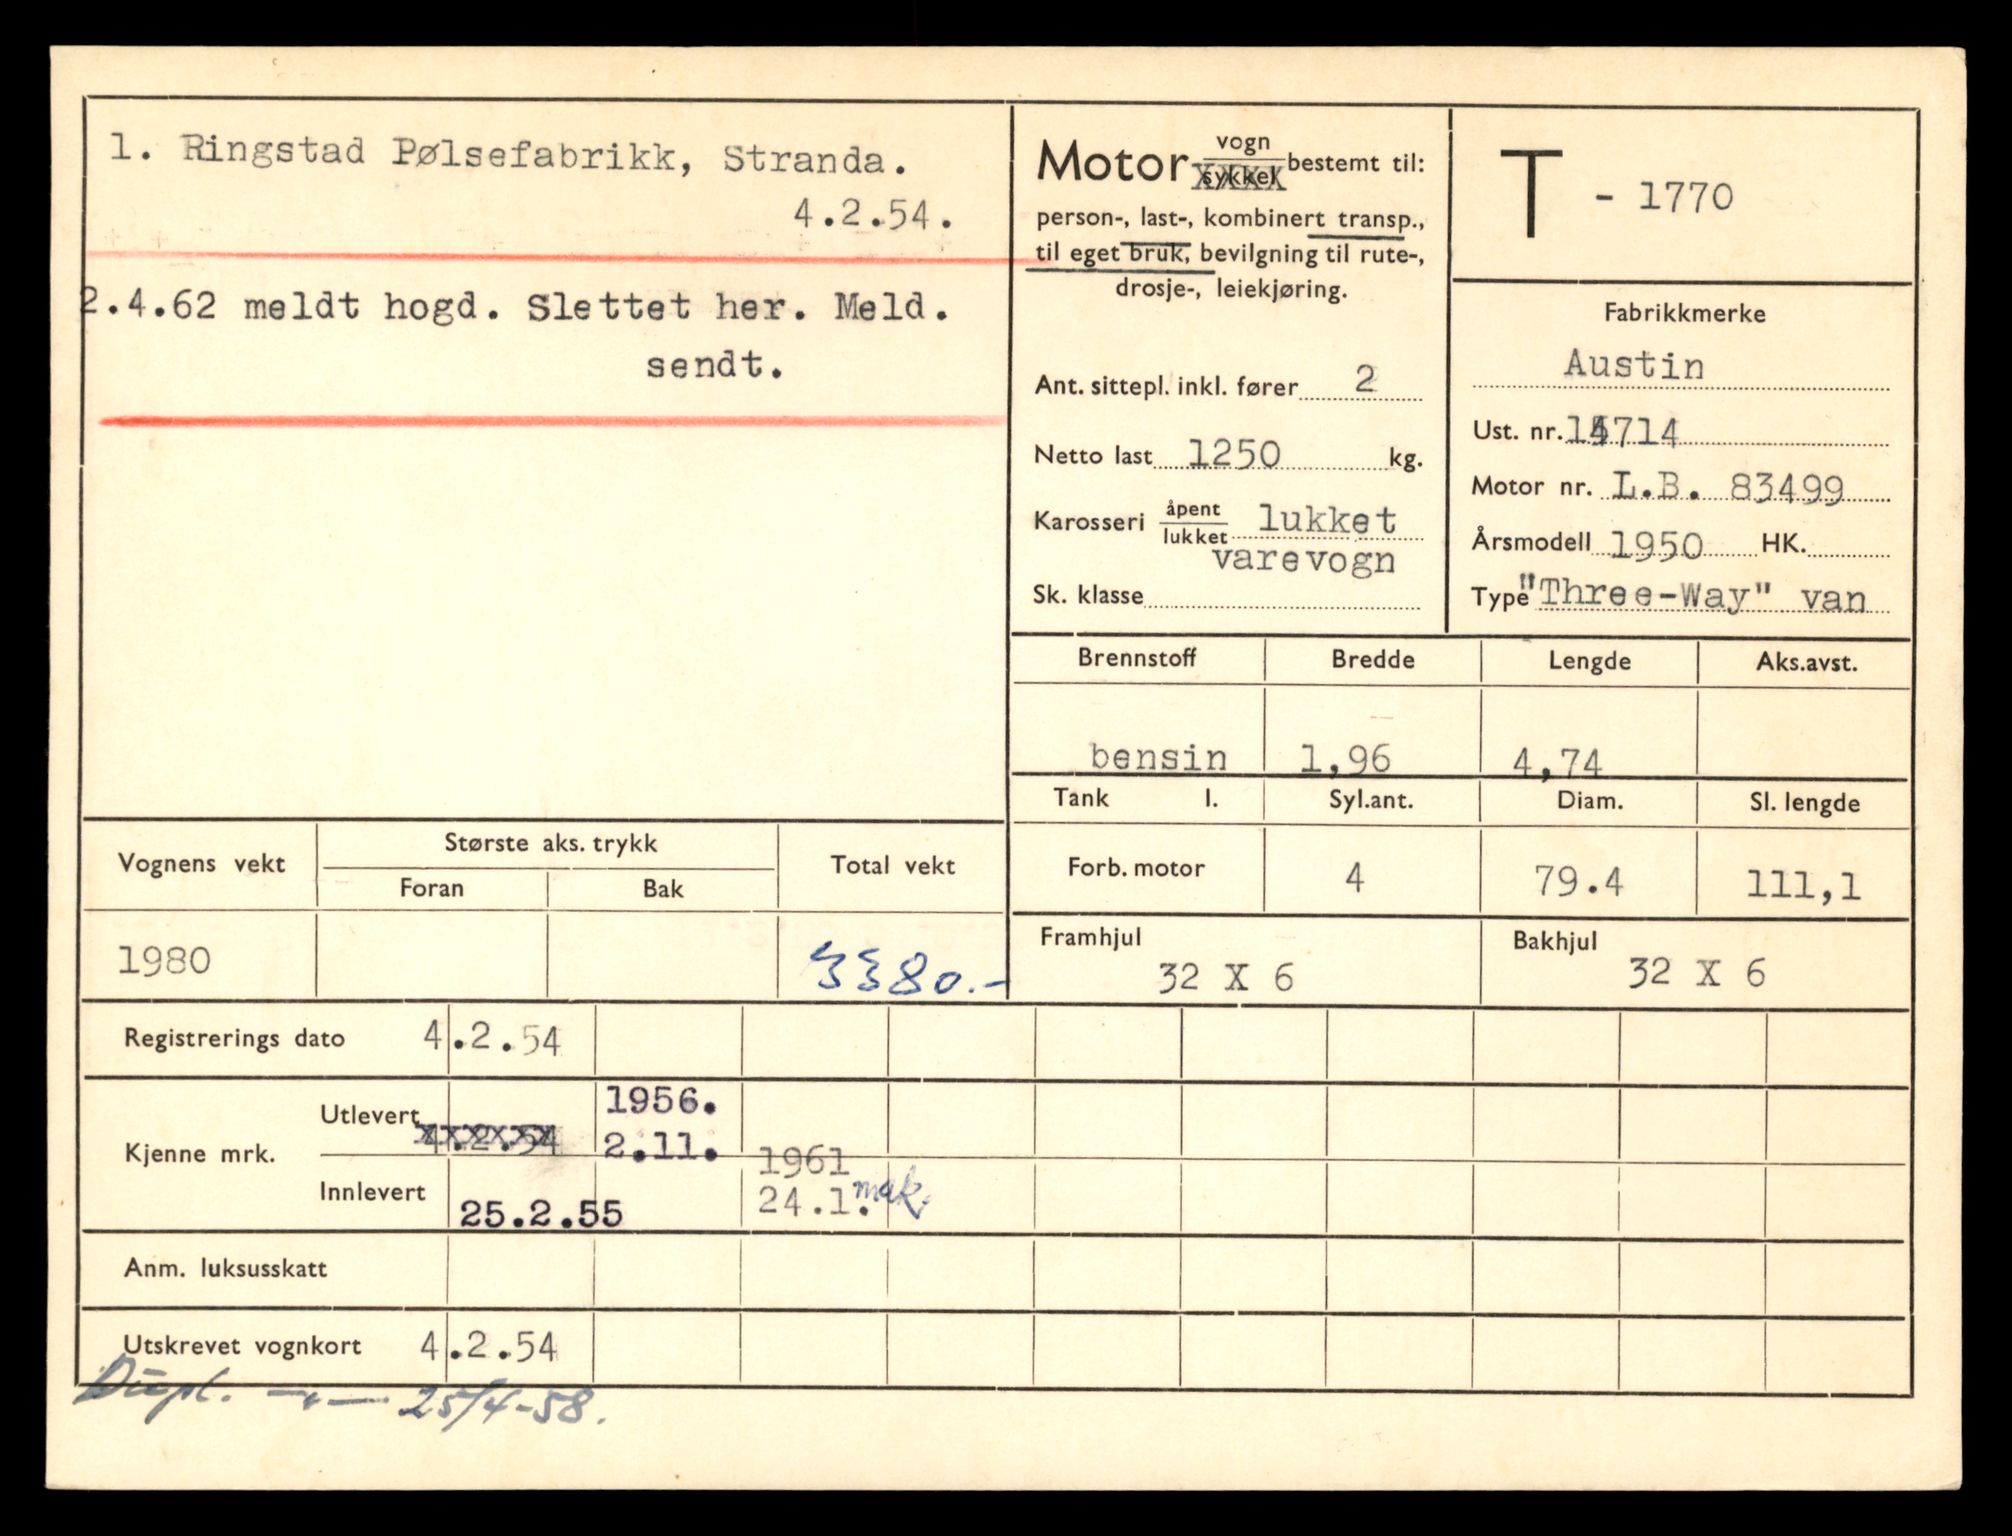 1. Ringstad Pølsefabrikk, Stranda.
4.2.54.
2.4.62 meldt hogd. Slettet her. Meld.
sendt.
Motor vogn sykkel bestemt til:
person-, last-, kombinert transp.,
til eget bruk, bevilgning til rute-,
drosje-, leiekjøring.
Ant. sittepl. inkl. fører 2
Netto last 1250 kg.
Karosseri åpent lukket lukket
varevogn
Sk. klasse
T - 1770
Fabrikkmerke
Austin
Ust. nr. 714
Motor nr. L.B. 83499
Årsmodell 1950 HK.
Type "Three-Way" van
Brennstoff Bredde Lengde Aks.avst.
bensin 1,96 4,74
Tank l. Syl.ant. Diam. Sl. lengde
Forb. motor 4 79.4 111,1
Framhjul Bakhjul
32 X 6 32 X 6
Vognens vekt Største aks. trykk Total vekt
Foran Bak
1980 3380.-
Registrerings dato 4.2.54
Kjenne mrk. Utlevert 4.2.54 1956.
2.11.
Innlevert 25.2.55 1961
24.1. mak.
Anm. luksusskatt
Utskrevet vognkort 4.2.54
Dupl. —"— 25/4-58.